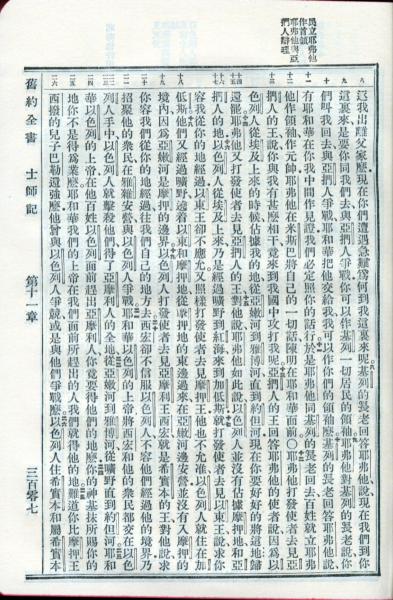 民立耶弗他
作首領
耶弗他與亞
捫人辯理
逐我出離父家麼現在你們遭遇急難爲何到我這裏來呢基列的長老回答耶弗他說現在我們到你
這裏來是要你同我們去與亞捫人爭戰你可以作基列一切居民的領袖耶弗他對基列的長老說你
們叫我回去與亞捫人爭戰耶和華把他交給我我可以作你們的領袖麼基列的長老回答耶弗他說
有耶和華在你我中間作見證我們必定照你的話行於是耶弗他同基列的長老回去百姓就立耶弗
他作領袖作元帥耶弗他在米斯巴將自己的一切話陳明在耶和華面前耶弗他打發使者去見亞
捫人的王說你與我有甚麼相干竟來到我國中攻打我呢亞捫人的王回答耶弗他的使者說因爲以
色列人從埃及上來的時候佔據我的地從亞嫩河到雅博河直到約但河現在你要好好的將這地歸
還罷耶弗他又打發使者去見亞捫人的王對他說耶弗他如此說以色列人並沒有佔據摩押地和亞
捫人的地以色列人從埃及上來乃是經過曠野到紅海來到加低斯就打發使者去見以東王說求你
容我從你的地經過以東王卻不應允又照樣打發使者去見摩押王他也不允准以色列人就住在加
低斯他們又經過曠野遶着以東和摩押地從摩押地的東邊過來在亞嫩河邊安營並沒有入摩押的
境內因爲亞嫩河是摩押的邊界以色列人打發使者去見亞摩利王西宏就是希實本的王對他說求
你容我們從你的地經過往我們自己的地方去西宏卻不信服以色列人不容他們經過他的境界乃
招聚他的衆民在雅雜安營與以色列人爭戰耶和華以色列的上帝將西宏和他的衆民都交在以色
列人手中以色列人就擊殺他們得了亞摩利人的全地從亞嫩河到雅博河從曠野直到約但河耶和
華以色列的上帝在他百姓以色列面前趕出亞摩利人你竟要得他們的地麼你的神基抹所賜你的
地你不是得爲業麼耶和華我們的上帝在我們面前所趕出的人我們就得他的地難道你比摩押王
西撥的兒子巴勒還強麼他曾與以色列人爭競或是與他們爭戰麼以色列人住希實本和屬希實本
舊約全書 士師記 第十一章 三百零七